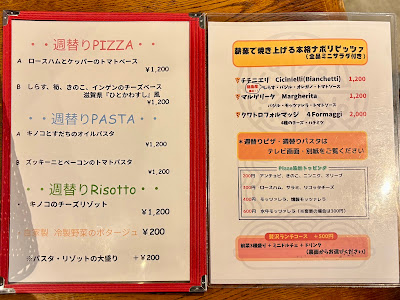 ・・週替りPIZZA・・
A ロースハムとケッパーのトマトベース
¥1,200
B しらす、筍、きのこ、インゲンのチーズベース
滋賀県『ひとかわすし』風
¥1,200
・・週替りPASTA・・
A キノコとすだちのオイルパスタ
¥1,200
B ズッキーニとベーコンのトマトパスタ
¥1,200
・・週替りRisotto・・
・キノコのチーズリゾット
¥1,200
自家製 冷製野菜のポタージュ ¥200
※パスタ・リゾットの大盛り +¥200
薪窯で焼き上げる本格ナポリピッツァ
(全品ミニサラダ付き)
チチニエリ Cicinielli(Bianchetti) 1,200
しらす・バジル・オレガノ・トマトソース
マルゲリータ Margherita 1,200
バジル・モッツァレラ・トマトソース
クワトロフォルマッジ 4 Formaggi 2,000
4種のチーズ・ハチミツ
*週替りピザ・週替りパスタは
テレビ画面・別紙をご覧ください
Pizza追加トッピング
200円 アンチョビ、きのこ、ニンニク、オリーブ
300円 ロースハム、サラミ、リコッタチーズ
400円 モッツァレラ、燻製モッツァレラ
600円 水牛モッツァレラ
贅沢ランチコース +500円
前菜3種盛り + ミニドルチェ + ドリンク